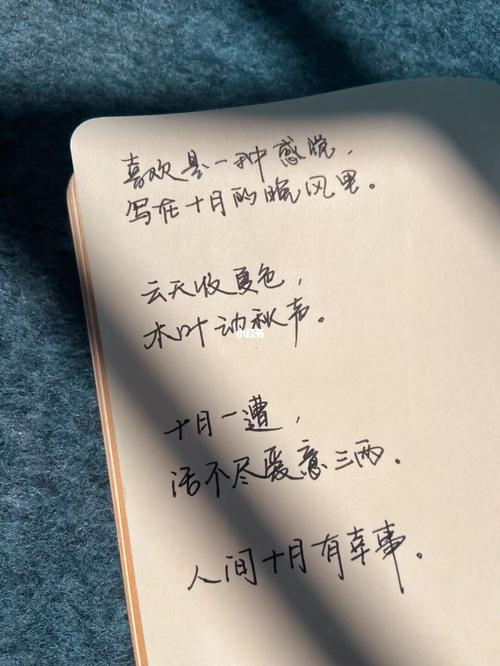 喜欢是一种感觉，
写在十月的晚风里。
云天收夏色，
木叶动秋声。
小红书
十月一遭，
话不尽爱意三两。
人间十月有幸事。